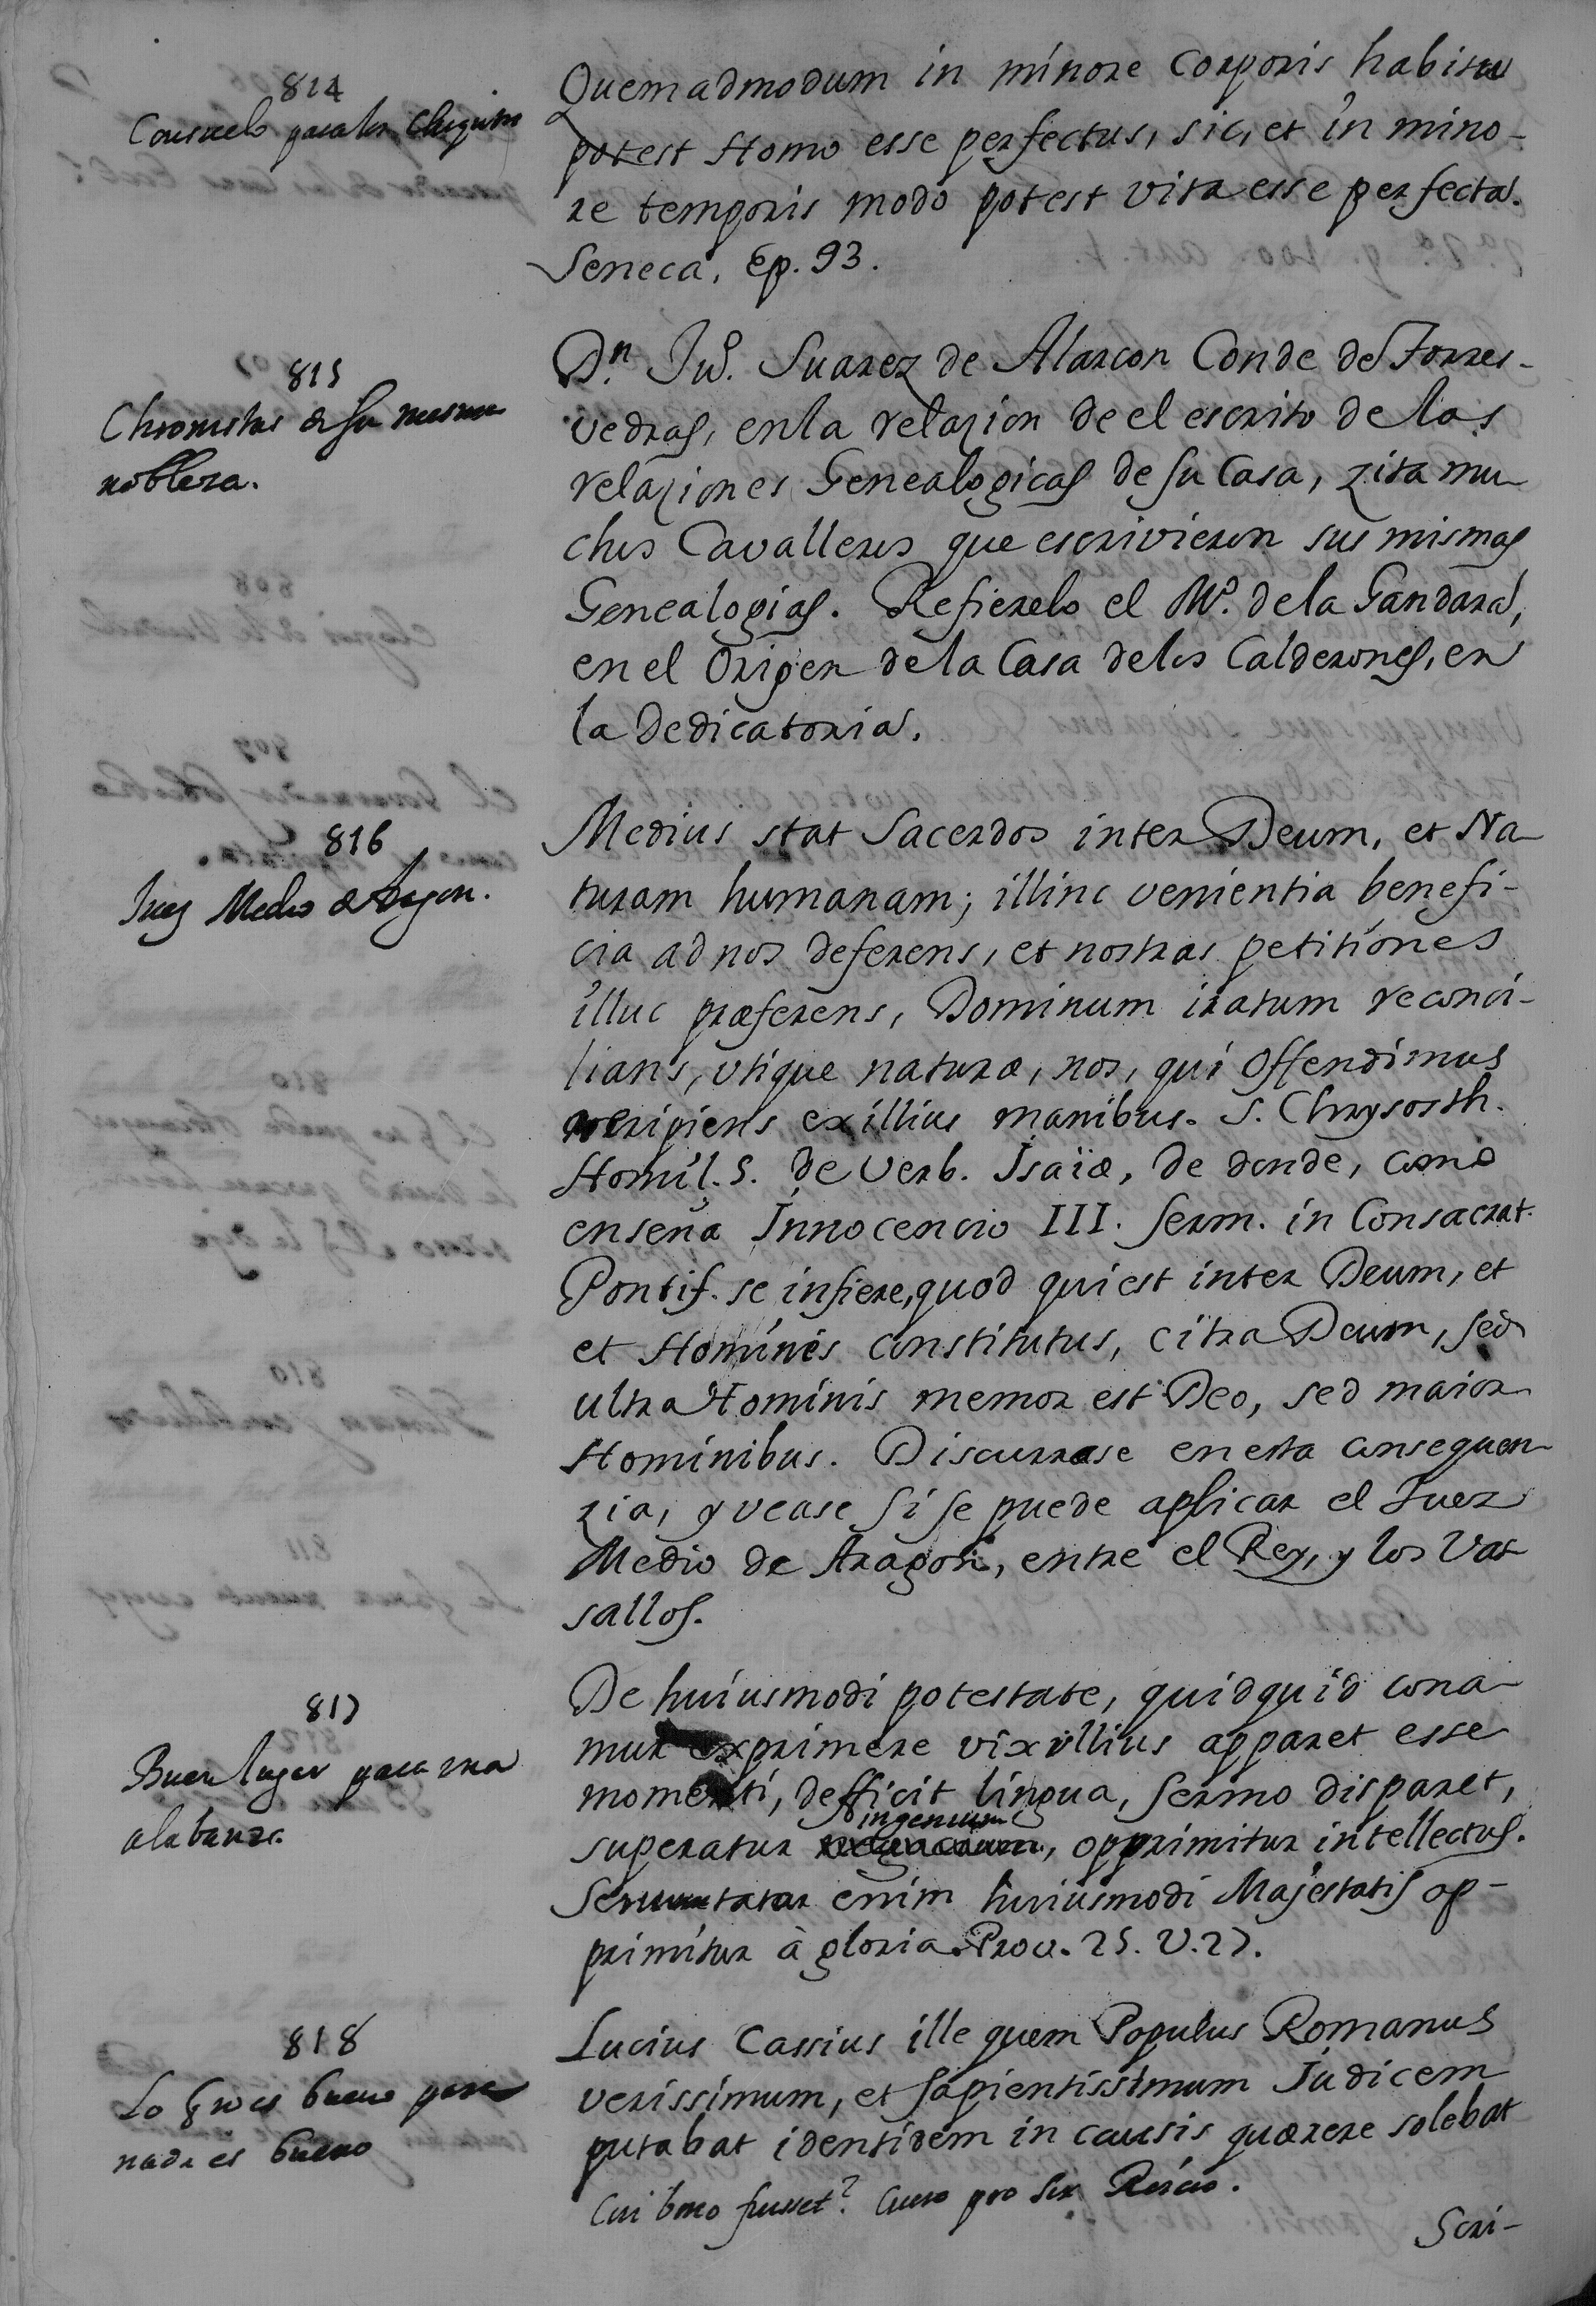 814
Consuelo para los chiquitos
Quemadmodum in minore corporis habitu
potest Homo esse perfectus, sic, et in mino-
re temporis modo potest vita esse perfecta.
Seneca, Ep. 93.
815
Chronistas de su mesma
nobleza.
Dn. Ju. Suarez de Alarcon Conde de Torres-
vedras, en la relazion de el escrito de las
relaziones Genealogicas de su Casa, zita mu-
chos Cavalleros que escrivieron sus mismas
Genealogias. Refierelo el Mo. de la Gandara,
en el Origen de la Casa de los Calderones, en
la Dedicatoria.
816
Juez Medio de Aragon.
Medius stat Sacerdos inter Deum, et Na-
turam humanam; illinc venientia benefi-
cia ad nos deferens, et nostras petitiones
illuc præferens, Dominum iratum reconci-
lians, utique naturæ, nos, qui offendimus
eripiens ex illius manibus. S. Chrysosth.
Homil. 5. de Verb. Isaïæ, de donde, como
enseña Innocencio III. Serm. in Consacrat.
Pontif. se infiere, quod qui est inter Deum, et
et Hominis constitutus, citra Deum, sed
ultra Hominis memor est Deo, sed maior
Hominibus. Discurrase en esta consequen-
zia, y vease si se puede aplicar el Juez
Medio de Aragon, entre el Rey, y los Vas
sallos.
817
Buen lugar para una
alabanza.
De huiusmodi potestate, quidquid cona-
mur exprimere vix ullius apparet esse
momenti, defficit lingua, sermo disparet,
superatur ingenium, opprimitur intellectus.
Scrutator enim huiusmodi Majestatis op-
primitur à gloria. Prov. 25. V. 27.
818
Lo q no es bueno para
nada es bueno
Lucius Cassius ille quem Populus Romanus
verissimum, et sapientissimum Judicem
putabat identidem in causis quærere solebat
Cui bono fuisset? Cicero pro Sex Roscio.
Scri-